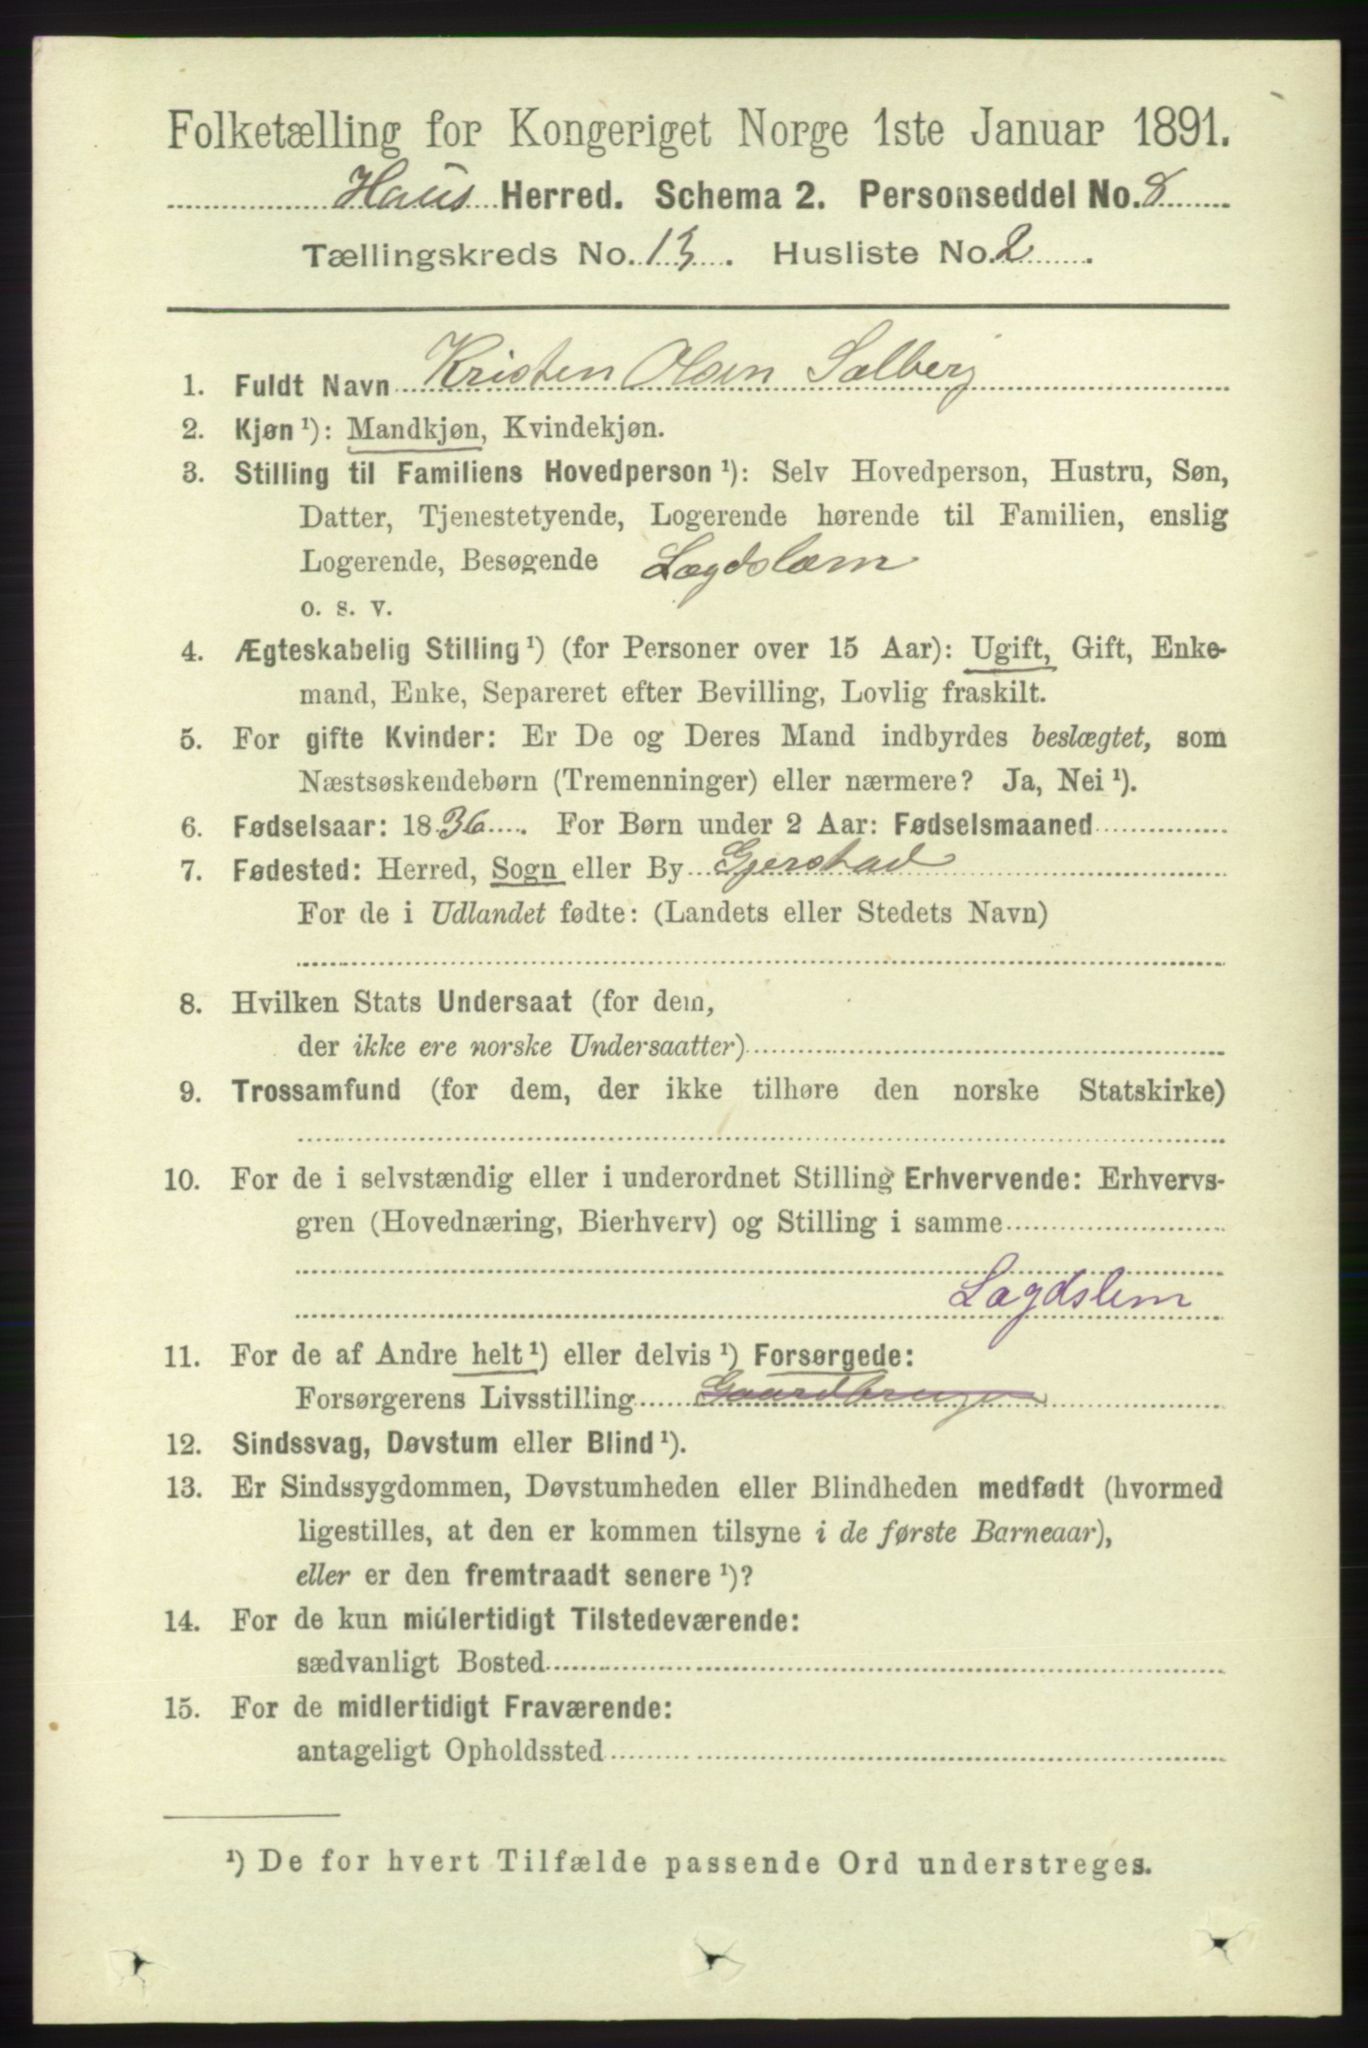 Folketælling for Kongeriget Norge 1ste Januar 1891.
Haus Herred. Schema 2. Personseddel No. 8
Tællingskreds No. 13. Husliste No. 2.
1. Fuldt Navn Kristen Olsen Salberg
2. Kjøn ¹): Mandkjøn, Kvindekjøn.
3. Stilling til Familiens Hovedperson ¹): Selv Hovedperson, Hustru, Søn,
Datter, Tjenestetyende, Logerende hørende til Familien, enslig
Logerende, Besøgende Lægdslem
o. s. v.
4. Ægteskabelig Stilling ¹) (for Personer over 15 Aar): Ugift, Gift, Enke-
mand, Enke, Separeret efter Bevilling, Lovlig fraskilt.
5. For gifte Kvinder: Er De og Deres Mand indbyrdes beslægtet, som
Næstsøskendebørn (Tremenninger) eller nærmere? Ja, Nei ¹).
6. Fødselsaar: 1836. For Børn under 2 Aar: Fødselsmaaned
7. Fødested: Herred, Sogn eller By Gjerstad
For de i Udlandet fødte: (Landets eller Stedets Navn)
8. Hvilken Stats Undersaat (for dem,
der ikke ere norske Undersaatter)
9. Trossamfund (for dem, der ikke tilhøre den norske Statskirke)
10. For de i selvstændig eller i underordnet Stilling Erhvervende: Erhvervs-
gren (Hovednæring, Bierhverv) og Stilling i samme
Lægdslem
11. For de af Andre helt ¹) eller delvis ¹) Forsørgede:
Forsørgerens Livsstilling Gaardbruger
12. Sindssvag, Døvstum eller Blind ¹).
13. Er Sindssygdommen, Døvstumheden eller Blindheden medfødt (hvormed
ligestilles, at den er kommen tilsyne i de første Barneaar),
eller er den fremtraadt senere ¹)?
14. For de kun midlertidigt Tilstedeværende:
sædvanligt Bosted
15. For de midlertidigt Fraværende:
antageligt Opholdssted
¹) De for hvert Tilfælde passende Ord understreges.